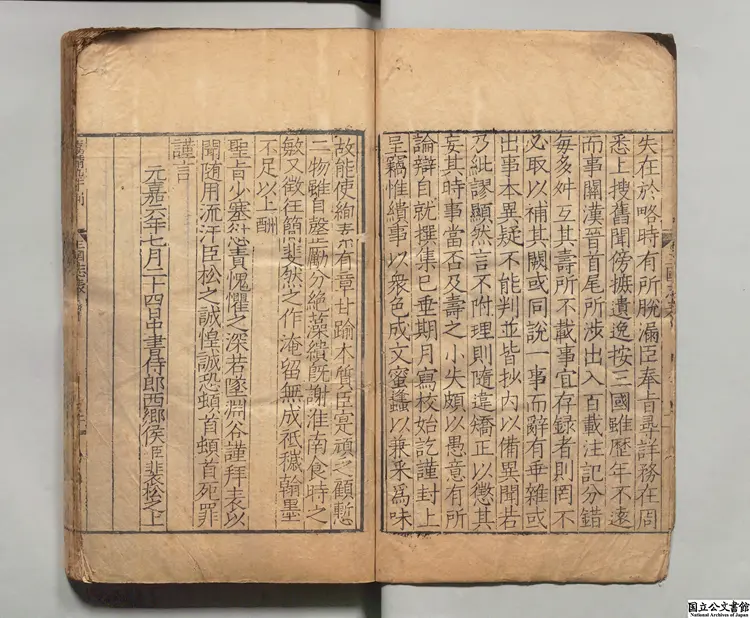 失在於略時有所脫漏臣奉旨尋詳務在周
悉上搜舊聞傍摭遺逸按三國雖歷年不遠
而事關漢晉首尾所涉出入百載注記分錯
每多舛互其壽所不載事宜存録者則罔不
必取以補其闕或同說一事而辭有乖雜或
出事本異疑不能判並皆抄內以備異聞若
乃紕謬顯然言不附理則隨違矯正以懲其
妄其時事當否及壽之小失頗以愚意有所
論辯自就撰集已垂期月寫校始訖謹封上
呈竊惟繢事以衆色成文蜜蠭以兼采爲味
故能使絢素有章甘踰本質臣寔頑乏顧慙
二物雖自罄勵分絶藻繢既謝淮南食時之
敏又微狂簡斐然之作淹留無成祗穢翰墨
不足以上酬
聖旨少塞愆責愧懼之深若墜淵谷謹拜表以
聞隨用流汗臣松之誠惶誠恐頓首頓首死罪
謹言
元嘉六年七月二十四日中書侍郎西鄉侯臣裴松之上
国立公文書館
National Archives of Japan